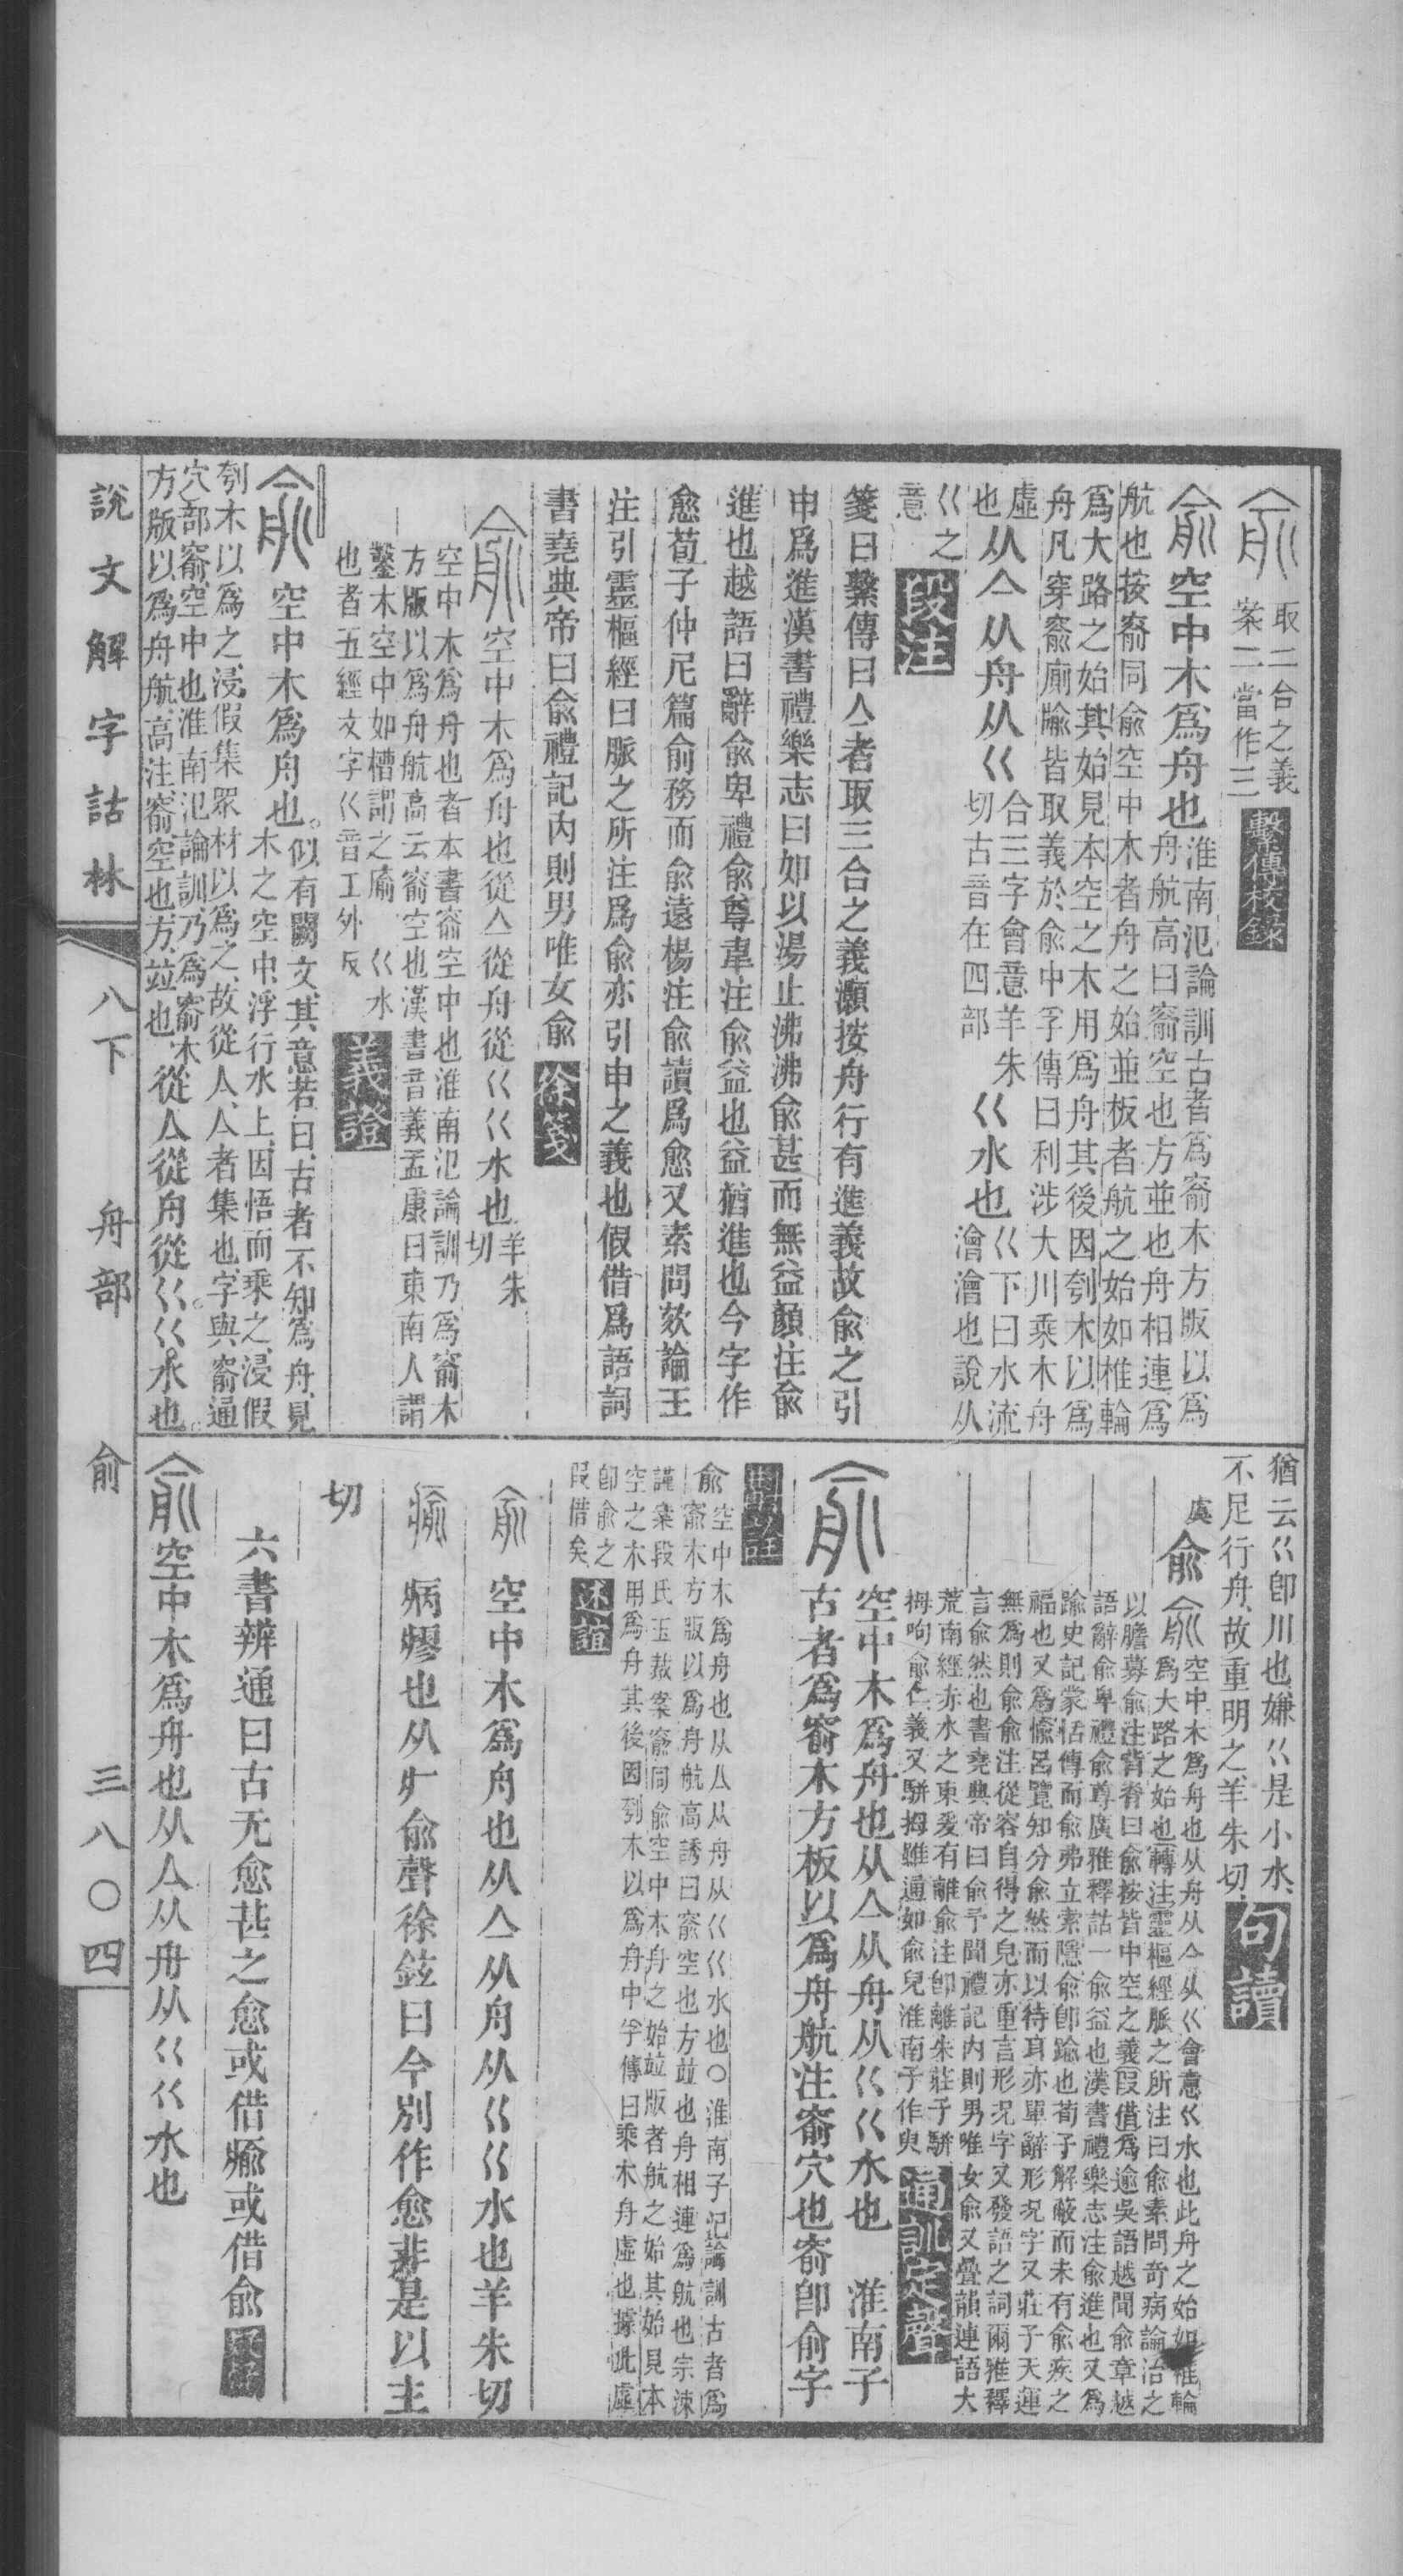 取二合之義
案二當作三
繫傳校錄
俞空中木爲舟也淮南氾論訓古者爲窬木方版以爲
舟航高曰窬空也方並也舟相連爲
航也按窬同俞空中木者舟之始並板者航之始如椎輪
爲大路之始其始見本空之木用爲舟其後因刳木以爲
舟凡穿窬廁牏皆取義於俞中孚傳曰利涉大川乘木舟
虛也从亼从舟从巜合三字會意羊朱
切古音在四部
巜水也巜下曰水流
澮澮也說从
巜之
意
段注
箋曰繫傳曰亼者取三合之義灝按舟行有進義故俞之引
申爲進漢書禮樂志曰如以湯止沸沸俞甚而無益顏注俞
進也越語曰辭俞卑禮俞尊韋注俞益也益猶進也今字作
愈荀子仲尼篇俞務而俞遠楊注俞讀爲愈又素問欬論王
注引靈樞經曰脈之所注爲俞亦引申之義也假借爲語詞
書堯典帝曰俞禮記內則男唯女俞
徐箋
空中木爲舟也從亼從舟從巜巜水也羊朱
切
空中木爲舟也者本書窬空中也淮南氾論訓乃爲窬木
方版以爲舟航高云窬空也漢書音義孟康曰東南人謂
鑿木空中如槽謂之牏 巜水
也者五經文字巜音工外反
義證
空中木爲舟也。似有闕文其意若曰古者不知爲舟見
木之空中浮行水上因悟而乘之浸假
刳木以爲之浸假集眾材以爲之故從亼亼者集也字與窬通
穴部窬空中也淮南氾論訓乃爲窬木
方版以爲舟航高注窬空也方竝也從亼從舟從巜。巜水也。
說文解字詁林
八下
舟部
俞
三八〇四
猶云巜卽川也嫌巜是小水
不足行舟故重明之羊朱切
句讀
虞
俞
空中木爲舟也从舟从亼从巜會意巜水也此舟之始如椎輪
爲大路之始也轉注靈樞經脈之所注曰俞素問奇病論治之
以膽募俞注背脊曰俞按皆中空之義叚借爲逾吳語越聞俞章越
語辭俞卑禮俞尊廣雅釋詁一俞益也漢書禮樂志注俞進也又爲
踰史記蒙恬傳而俞弗立索隱俞卽踰也荀子解蔽而未有俞疾之
福也又爲愉呂覽知分俞然而以待耳亦單辭形況字又莊子天運
無爲則俞俞注從容自得之皃亦重言形況字又發語之詞爾雅釋
言俞然也書堯典帝曰俞予聞禮記內則男唯女俞又疊韻連語大
荒南經赤水之東爰有離俞注卽離朱莊子駢
拇呴俞仁義又駢拇雖通如俞兒淮南子作臾
通訓定聲
空中木爲舟也从亼从舟从巜巜水也 淮南子
古者爲窬木方板以爲舟航注窬穴也窬卽俞字
俞空中木爲舟也从亼从舟从巜巜水也〇淮南子氾論訓古者爲
窬木方版以爲舟航高誘曰窬空也方竝也舟相連爲航也宗涑
謹案段氏玉裁案窬同俞空中木舟之始竝版者航之始其始見本
空之木用爲舟其後因刳木以爲舟中孚傳曰乘木舟虛也據此虛
卽俞之
叚借矣
述誼
空中木爲舟也从亼从舟从巜巜水也羊朱切
病瘳也从疒俞聲徐鉉曰今別作愈非是以主
切
六書辨通曰古无愈甚之愈或借瘉或借俞
空中木爲舟也从亼从舟从巜巜水也